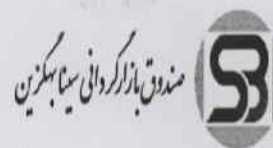 صندوق بازارگردانی سینا بهگزین